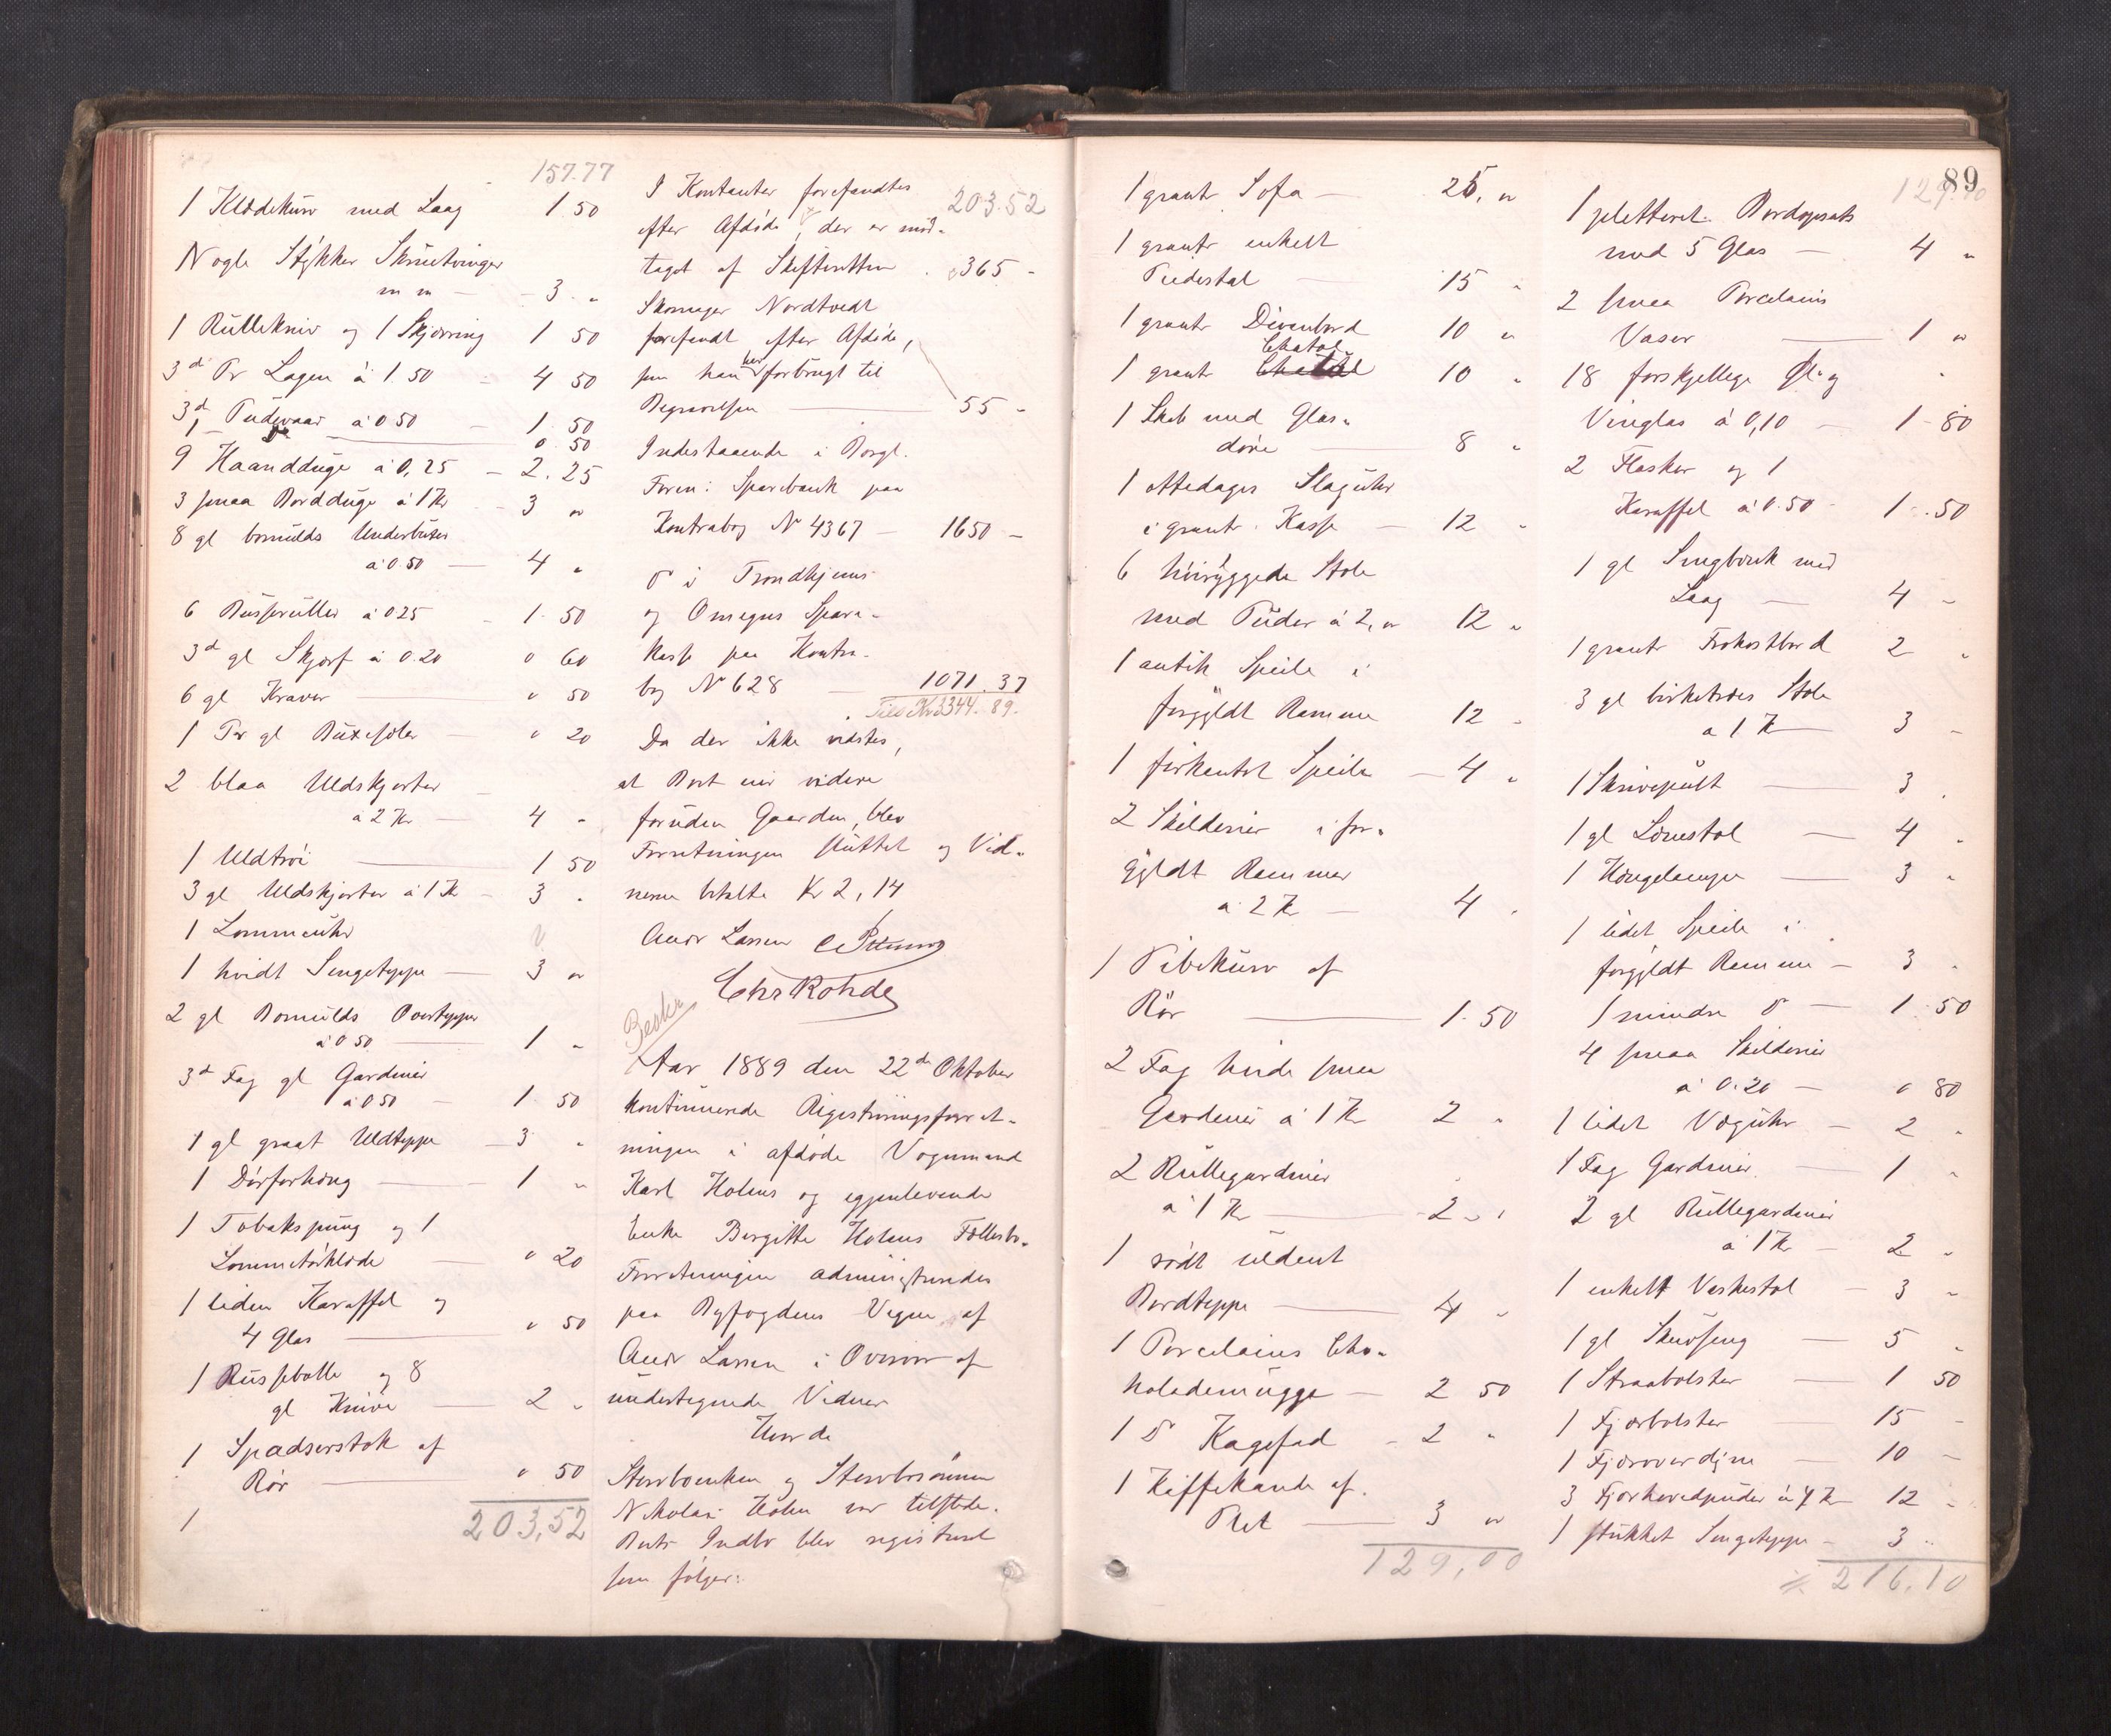 157.77
1 Klædekurv med Laag 1.50
Nogle Stykker Skruetvinger
m m — 3 "
1 Rullekniv og 1 Skjærring 1 50
3d Pr Lagen à 1.50 - 4 50
3d Pudevaar à 0 50 - 1.50
1 — 0.50
9 Haandduge à 0,25 - 2.25
3 smaa Bordduge à 1 Kr - 3 "
8 gl bomulds Underbuxer
à 0.50 — 4 "
6 Busseruller à 0 25 - 1.50
3d gl Skjærf à 0.20 " 60
6 gl Kraver — " 50
1 Par gl Buxeseler - " 20
2 blaa Uldskjorter
à 2 Kr — 4 "
1 Uldtrøi — 1 50
3 gl Uldskjorter à 1 Kr - 3 "
1 Lommeuhr
1 hvidt Sengeteppe — 3 "
2 gl Bomulds Overtepper
à 0 50 — 1 "
3d Fag gl Gardiner
à 0 50 - 1.50
1 gl graat Uldteppe — 3 "
1 Dørforhæng — 1 "
1 Tobakspung og 1
Lommetørklæde — " 20
1 liden Karaffel og
4 Glas — " 50
1 Punschebolle og 8
gl Knive — 2 "
1 Spadserstok af
Rør — " 50
1 203,52
I Kontanter forefandtes 203.52
efter Afdøde, der er mod-
taget af Skifteretten . 365 -
Skomager Nordtvedt
forefandt efter Afdøde,
som han har forbrugt til
Begravelsen — 55 -
Indestaaende i Borgl.
Foren: Sparebank paa
Kontrabog No 4367 — 1650 —
do i Trondhjems
og Omegns Spare-
kasse paa Kontra-
bog No 628 — 1071.37
Tils Kr 3344.89.
Da der ikke vidstes,
at Boet eier videre
foruden Gaarden, blev
Forretningen sluttet og Vid-
nerne betalte Kr 2,14
Andr Larsen
Chr Rohde
Beskr
Aar 1889 den 22de Oktober
kontinuerede Registreringsforret-
ningen i afdøde Vognmand
Karl Holms og gjenlevende
Enke Bergitte Holms Fællesbo.
Forretningen administreredes
paa Byfogdens Vegne af
Andr Larsen i Overvær af
undertegnede Vidner
Hvorda
Stervboenken og Stervbosønnen
Nikolai Holm var tilstede.
Boets Indbo blev registreret
som følger:
89
1 grønt Sofa — 25, "
1 grønt enkelt
Piedestal — 15 "
1 grønt Divanbord 10 "
Chatol
1 grønt Chatol 10 "
1 Skab med Glas-
døre — 8 "
1 ottedages Slaguhr
i grønt Kasse — 12 "
6 høiryggede Stole
med Puder à 2, " 12 "
1 antik Speile i
forgyldt Ramme 12 "
1 firkantet Speile — 4 "
2 Skilderier i for-
gyldt Rammer
à 2 Kr — 4 "
1 Pibekurv af
Rør — 1.50
2 Fag hvide smaa
Gardiner à 1 Kr 2 "
2 Rullegardiner
à 1 Kr — 2 "
1 rødt uldent
Bordteppe — 4 "
1 Porcelains Cho-
kolademugge — 2 50
1 do Kagefad - 2 "
1 Kaffekande af
Plet — 3 "
129,00
129.00
1 pletteret Bordopsats
med 5 Glas — 4 "
2 smaa Porcelains
Vaser — 1 "
18 forskjellige Øl- og
Vinglas à 0,10 — 1-80
2 Flasker og 1
Karaffel à 0.50 - 1.50
1 gl Sengbænk med
Laag — 4 "
1 grønt Frokostbord 2 "
3 gl birketræes Stole
à 1 Kr — 3 -
1 Skrivepult — 3 .
1 gl Lænestol — 4 "
1 Hængelampe — 3 "
1 lidet Speile i
forgyldt Ramme — 3 "
1 mindre do — 1.50
4 smaa Skilderier
à 0.20 — " 80
1 lidet Væguhr — 2 "
1 Fag Gardiner — 1 "
2 gl Rullegardiner
à 1 Kr — 2 "
1 enkelt Vaskestol — 3 "
1 gl Skuvseng — 5 "
1 Straabolster — 1 50
1 Fjærbolster — 15 -
1 Fjæroverdyne — 10 -
3 Fjærhovedpuder à 4 Kr 12 "
1 stukket Sengeteppe - 3 "
216.10